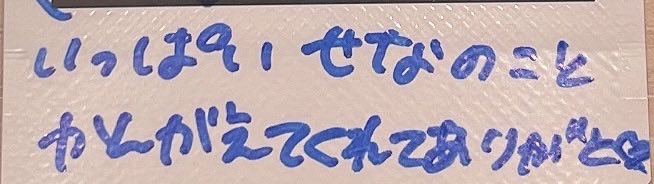 いっぱい せなのこと
かんがえてくれてありがとう